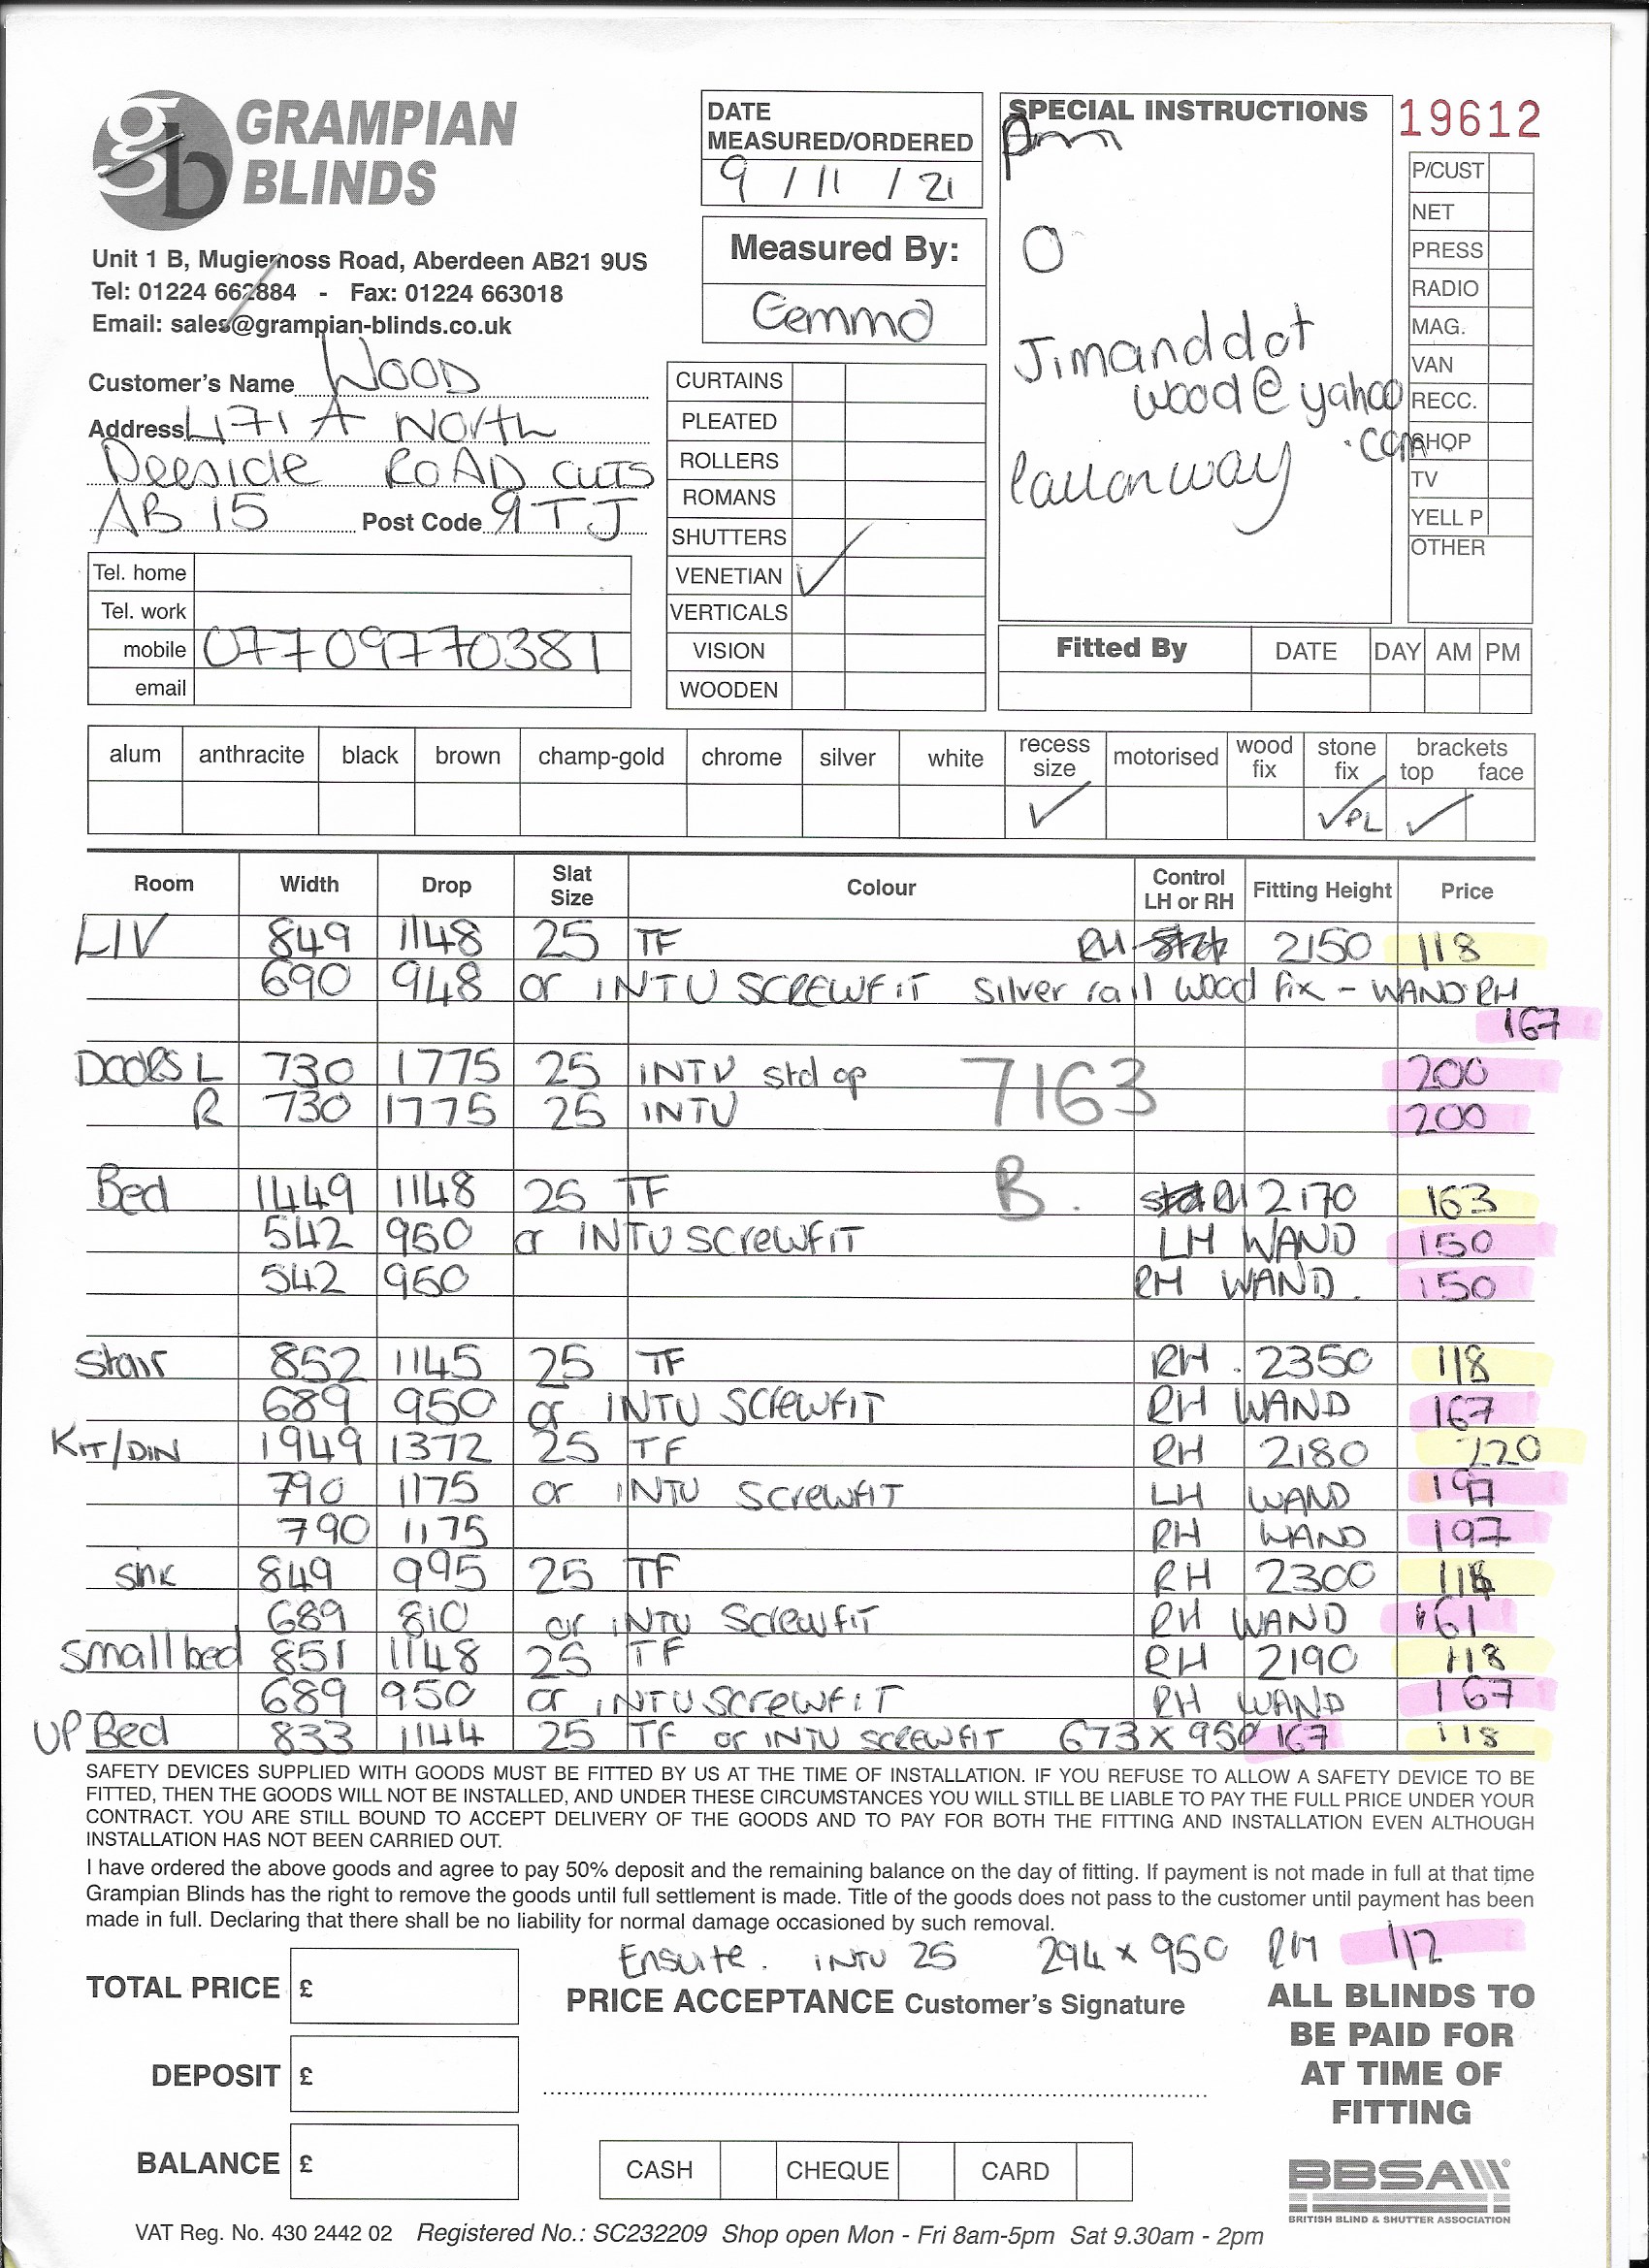 GRAMPIAN
BLINDS
Unit 1 B, Mugiemoss Road, Aberdeen AB21 9US
Tel: 01224 662884 - Fax: 01224 663018
Email: sales@grampian-blinds.co.uk
Customer's Name WOOD
Address 171 A North
Deeside ROAD CULTS
AB 15 Post Code 9TJ
Tel. home
Tel. work
mobile 07709770381
email
DATE
MEASURED/ORDERED
9 / 11 / 21
Measured By:
Gemma
CURTAINS
PLEATED
ROLLERS
ROMANS
SHUTTERS
VENETIAN ✓
VERTICALS
VISION
WOODEN
SPECIAL INSTRUCTIONS
pm
O
Jimanddot
wood@yahoo
.com
19612
P/CUST
NET
PRESS
RADIO
MAG.
VAN
RECC.
SHOP
TV
YELL P
OTHER
Fitted By DATE DAY AM PM
alum anthracite black brown champ-gold chrome silver white recess size motorised wood fix stone fix brackets top face
✓ ✓ PL ✓
Room Width Drop Slat Size Colour Control LH or RH Fitting Height Price
LIV 849 1148 25 TF RH 2150 118
690 948 or INTU SCREWFIT Silver rail wood fix - WAND RH
167
DOORS L 730 1775 25 INTU std op 7163 200
R 730 1775 25 INTU 200
Bed 1449 1148 25 TF B. 2170 163
542 950 or INTU SCREWFIT LH WAND 150
542 950 RH WAND. 150
Stair 852 1145 25 TF RH . 2350 118
689 950 or INTU SCREWFIT RH WAND 167
KIT/DIN 1949 1372 25 TF RH 2180 220
790 1175 or INTU SCREWFIT LH WAND 197
790 1175 RH WAND 197
sink 849 995 25 TF RH 2300
689 810 or INTU SCREWFIT RH WAND 161
Small bed 851 1148 25 TF RH 2190 118
689 950 or INTU SCREWFIT RH WAND 167
UP Bed 833 1144 25 TF or INTU SCREWFIT 673 x 950 167 118
SAFETY DEVICES SUPPLIED WITH GOODS MUST BE FITTED BY US AT THE TIME OF INSTALLATION. IF YOU REFUSE TO ALLOW A SAFETY DEVICE TO BE
FITTED, THEN THE GOODS WILL NOT BE INSTALLED, AND UNDER THESE CIRCUMSTANCES YOU WILL STILL BE LIABLE TO PAY THE FULL PRICE UNDER YOUR
CONTRACT. YOU ARE STILL BOUND TO ACCEPT DELIVERY OF THE GOODS AND TO PAY FOR BOTH THE FITTING AND INSTALLATION EVEN ALTHOUGH
INSTALLATION HAS NOT BEEN CARRIED OUT.
I have ordered the above goods and agree to pay 50% deposit and the remaining balance on the day of fitting. If payment is not made in full at that time
Grampian Blinds has the right to remove the goods until full settlement is made. Title of the goods does not pass to the customer until payment has been
made in full. Declaring that there shall be no liability for normal damage occasioned by such removal.
Ensuite. INTU 25 294 x 950 RH 112
TOTAL PRICE £
DEPOSIT £
BALANCE £
PRICE ACCEPTANCE Customer's Signature
CASH CHEQUE CARD
ALL BLINDS TO
BE PAID FOR
AT TIME OF
FITTING
BBSA
BRITISH BLIND & SHUTTER ASSOCIATION
VAT Reg. No. 430 2442 02 Registered No.: SC232209 Shop open Mon - Fri 8am-5pm Sat 9.30am - 2pm